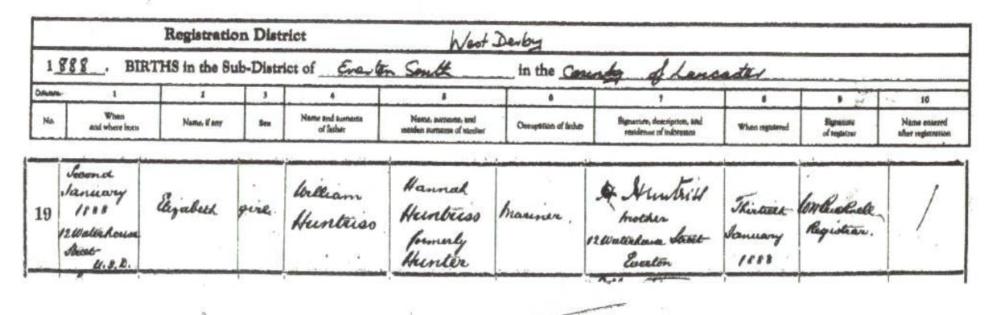 Registration District West Derby
1888. BIRTHS in the Sub-District of Everton South in the County of Lancaster
Columns:- 1 2 3 4 5 6 7 8 9 10
No. When and where born Name, if any Sex Name and surname of father Name, surname, and maiden surname of mother Occupation of father Signature, description, and residence of informant When registered Signature of registrar Name entered after registration
19
Second
January
1888
12 Waterhouse
Street
U.S.D.
Elizabeth
girl
William
Huntriss
Hannah
Huntriss
formerly
Hunter
Mariner.
H Huntriss
Mother
12 Waterhouse Street
Everton
Thirtieth
January
1888
Registrar.